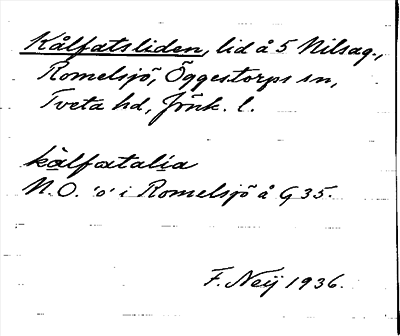 Kålfatsliden, lid å 5 Nilsag.,
Romelsjö, Öggestorps sn,
Tveta hd, Jönk. l.
kålfatalia
N.O. 'o' i Romelsjö å G 35.
F. Neij 1936.